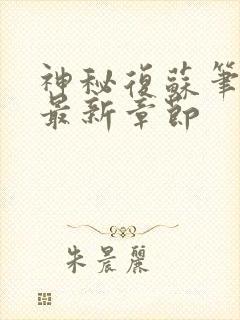 神秘復蘇筆
最新章節
朱晨麗